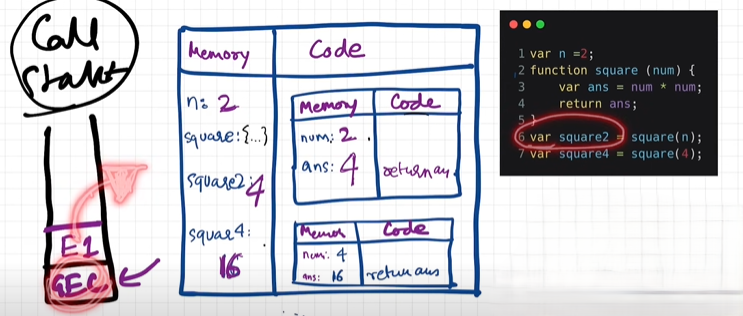 Call
Stack
E1
GEC
Memory
Code
n: 2
square:{...}
square2: 4
squar4:
16
Memory
Code
num: 2
ans: 4
return an
Memor
Code
num: 4
ans: 16
return ans
1 var n =2;
2 function square (num) {
3 var ans = num * num;
4 return ans;
5 }
6 var square2 = square(n);
7 var square4 = square(4);